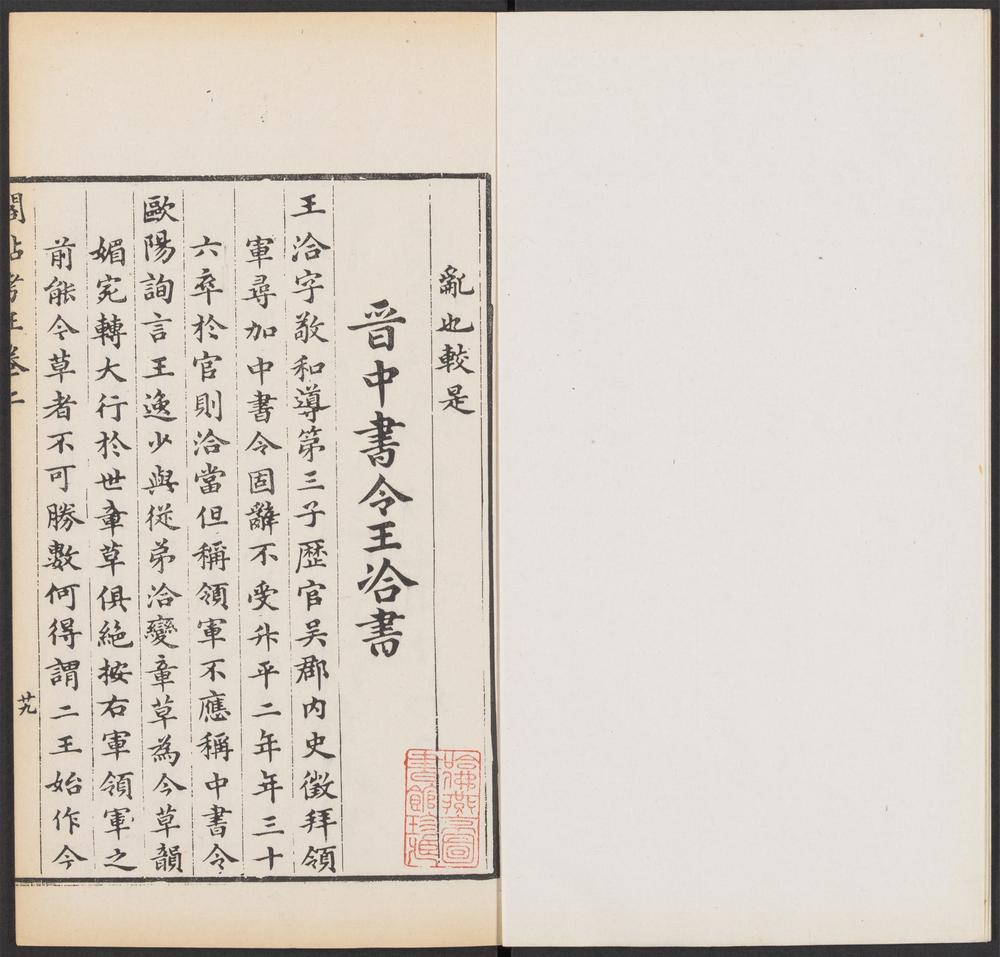 亂也較是
晋中書令王洽書
王洽字敬和導第三子歷官吴郡内史徵拜領
軍尋加中書令固辭不受升平二年年三十
六卒於官則洽當但稱領軍不應稱中書令
歐陽詢言王逸少與從弟洽變章草為今草韻
媚宛轉大行於世章草俱絕按右軍領軍之
前能今草者不可勝數何得謂二王始作今
閣帖考正卷二
廿九
哈佛燕京圖
書館珍藏